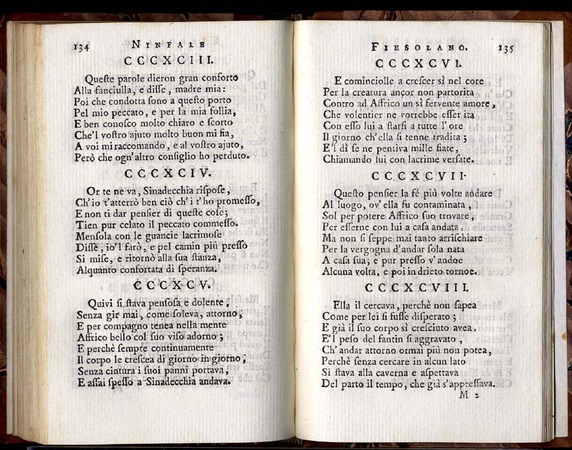 134 NINFALE
CCCXCIII.
Queſte parole dieron gran conforto
Alla fanciulla, e diſſe, madre mia:
Poi che condotta ſono a queſto porto
Pel mio peccato, e per la mia follia,
E ben conoſco molto chiaro e ſcorto
Che'l voſtro ajuto molto buon mi ſia,
A voi mi raccomando, e al voſtro ajuto,
Però che ogn'altro conſiglio ho perduto.
CCCXCIV.
Or te ne va, Sinadecchia riſpoſe,
Ch'io t'atterrò ben ciò ch'i t'ho promeſſo,
E non ti dar penſier di queſte coſe;
Tien pur celato il peccato commeſſo.
Menſola con le guancie lacrimoſe
Diſſe, io'l farò, e pel camin più preſſo
Si miſe, e ritornò alla ſua ſtanza,
Alquanto confortata di ſperanza.
CCCXCV.
Quivi ſi ſtava penſoſa e dolente,
Senza gir mai, come ſoleva, attorno;
E per compagno tenea nella mente
Affrico bello col ſuo viſo adorno;
E perchè ſempre continuamente
Il corpo le creſcea di giorno in giorno,
Senza cintura i ſuoi panni portava,
E aſſai ſpeſſo a Sinadecchia andava.
FIESOLANO. 135
CCCXCVI.
E cominciolle a creſcer sì nel core
Per la creatura ançor non partorita
Contro ad Affrico un sì fervente amore,
Che volentier ne vorrebbe eſſer ita
Con eſſo lui a ſtarſi a tutte l'ore
Il giorno ch'ella ſi tenne tradita;
E'l dì ſe ne pentiva mille fiate,
Chiamando lui con lacrime verſate.
CCCXCVII.
Queſto penſier la fé più volte andare
Al luogo, ov' ella fu contaminata,
Sol per potere Affrico ſuo trovare,
Per eſſerne con lui a caſa andata.
Ma non ſi ſeppe mai tanto arriſchiare
Per la vergogna d'andar ſola nata
A caſa ſua; e pur preſſo v'andoe
Alcuna volta, e poi in drieto tornoe.
CCCXCVIII.
Ella il cercava, perchè non ſapea
Come per lei ſi fuſſe diſperato;
E già il ſuo corpo sì creſciuto avea,
E'l peſo del fantin sì aggravato,
Ch'andar attorno ormai più non potea,
Perchè ſenza cercare in alcun lato
Si ſtava alla caverna e aſpettava
Del parto il tempo, che già s'appreſſava.
M 2